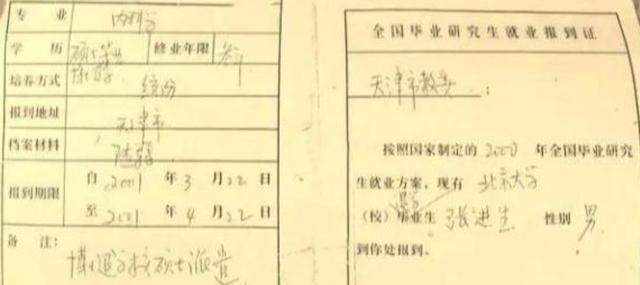 专业 内科学
学历 硕士毕业 修业年限 叁年
培养方式 统分
报到地址 天津市
档案材料
报到期限 自 2001 年 3 月 22 日
至 2001 年 4 月 22 日
备注:
博退学按硕士派遣
全国毕业研究生就业报到证
天津市教委:
按照国家制定的 2000 年全国毕业研究
生就业方案、现有 北京大学
退学
(校)毕业生 张进生 性别 男
到你处报到。